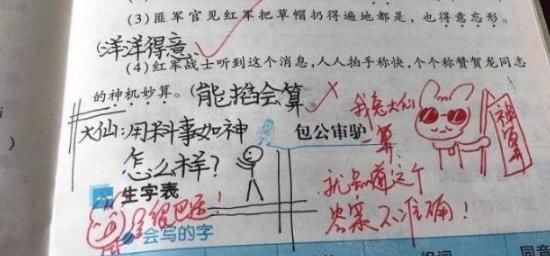 (3)匪军官见红军把草帽扔得遍地都是,也得意忘形。
(洋洋得意)
(4)红军战士听到这个消息,人人拍手称快,个个称赞贺龙同志
的神机妙算。(能掐会算)
大仙:用料事如神
怎么样?
包公审驴
我兔大仙
一算,
就知道这个
答案不准确!
神算
生字表
会写的字
组词
同音